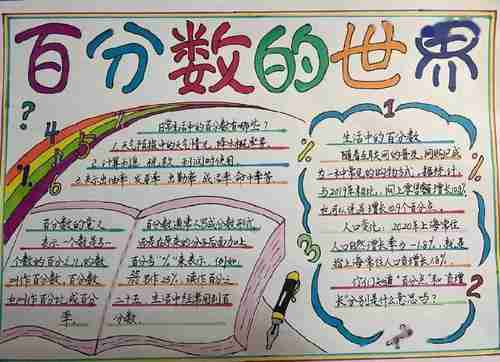 百分数的世界
?
4
5
6
%
日常生活中的百分数有哪些?
1.天气预报中的天气情况，降水概率等
2.计算出 税、利润时使用
3.表示出油率 发芽率 出勤率 成活率 命中率等
百分数的意义
表示一个数是另一
个数的百分之几的数
叫作百分数，百分数
也叫作百分比或百分
率
百分数通常不写成分数形式
而是在原来的分子后面加上
百分号"%"来表示，例如，
写作25%，读作百分之
二十五，生活中经常用到百
分数.
1
%
3
2
生活中的百分数
随着互联网的普及，网购已成
为一种常见的购物方式，据统计，
与2019年相比，网上零售额增长
也可以说是增长 个百分点.
人口变化：2020年上海常住
人口自然增长率为-1.8‰，就是
指上海常住人口
你们知道"百分点"和"自然
增长率"分别是什么意思吗?